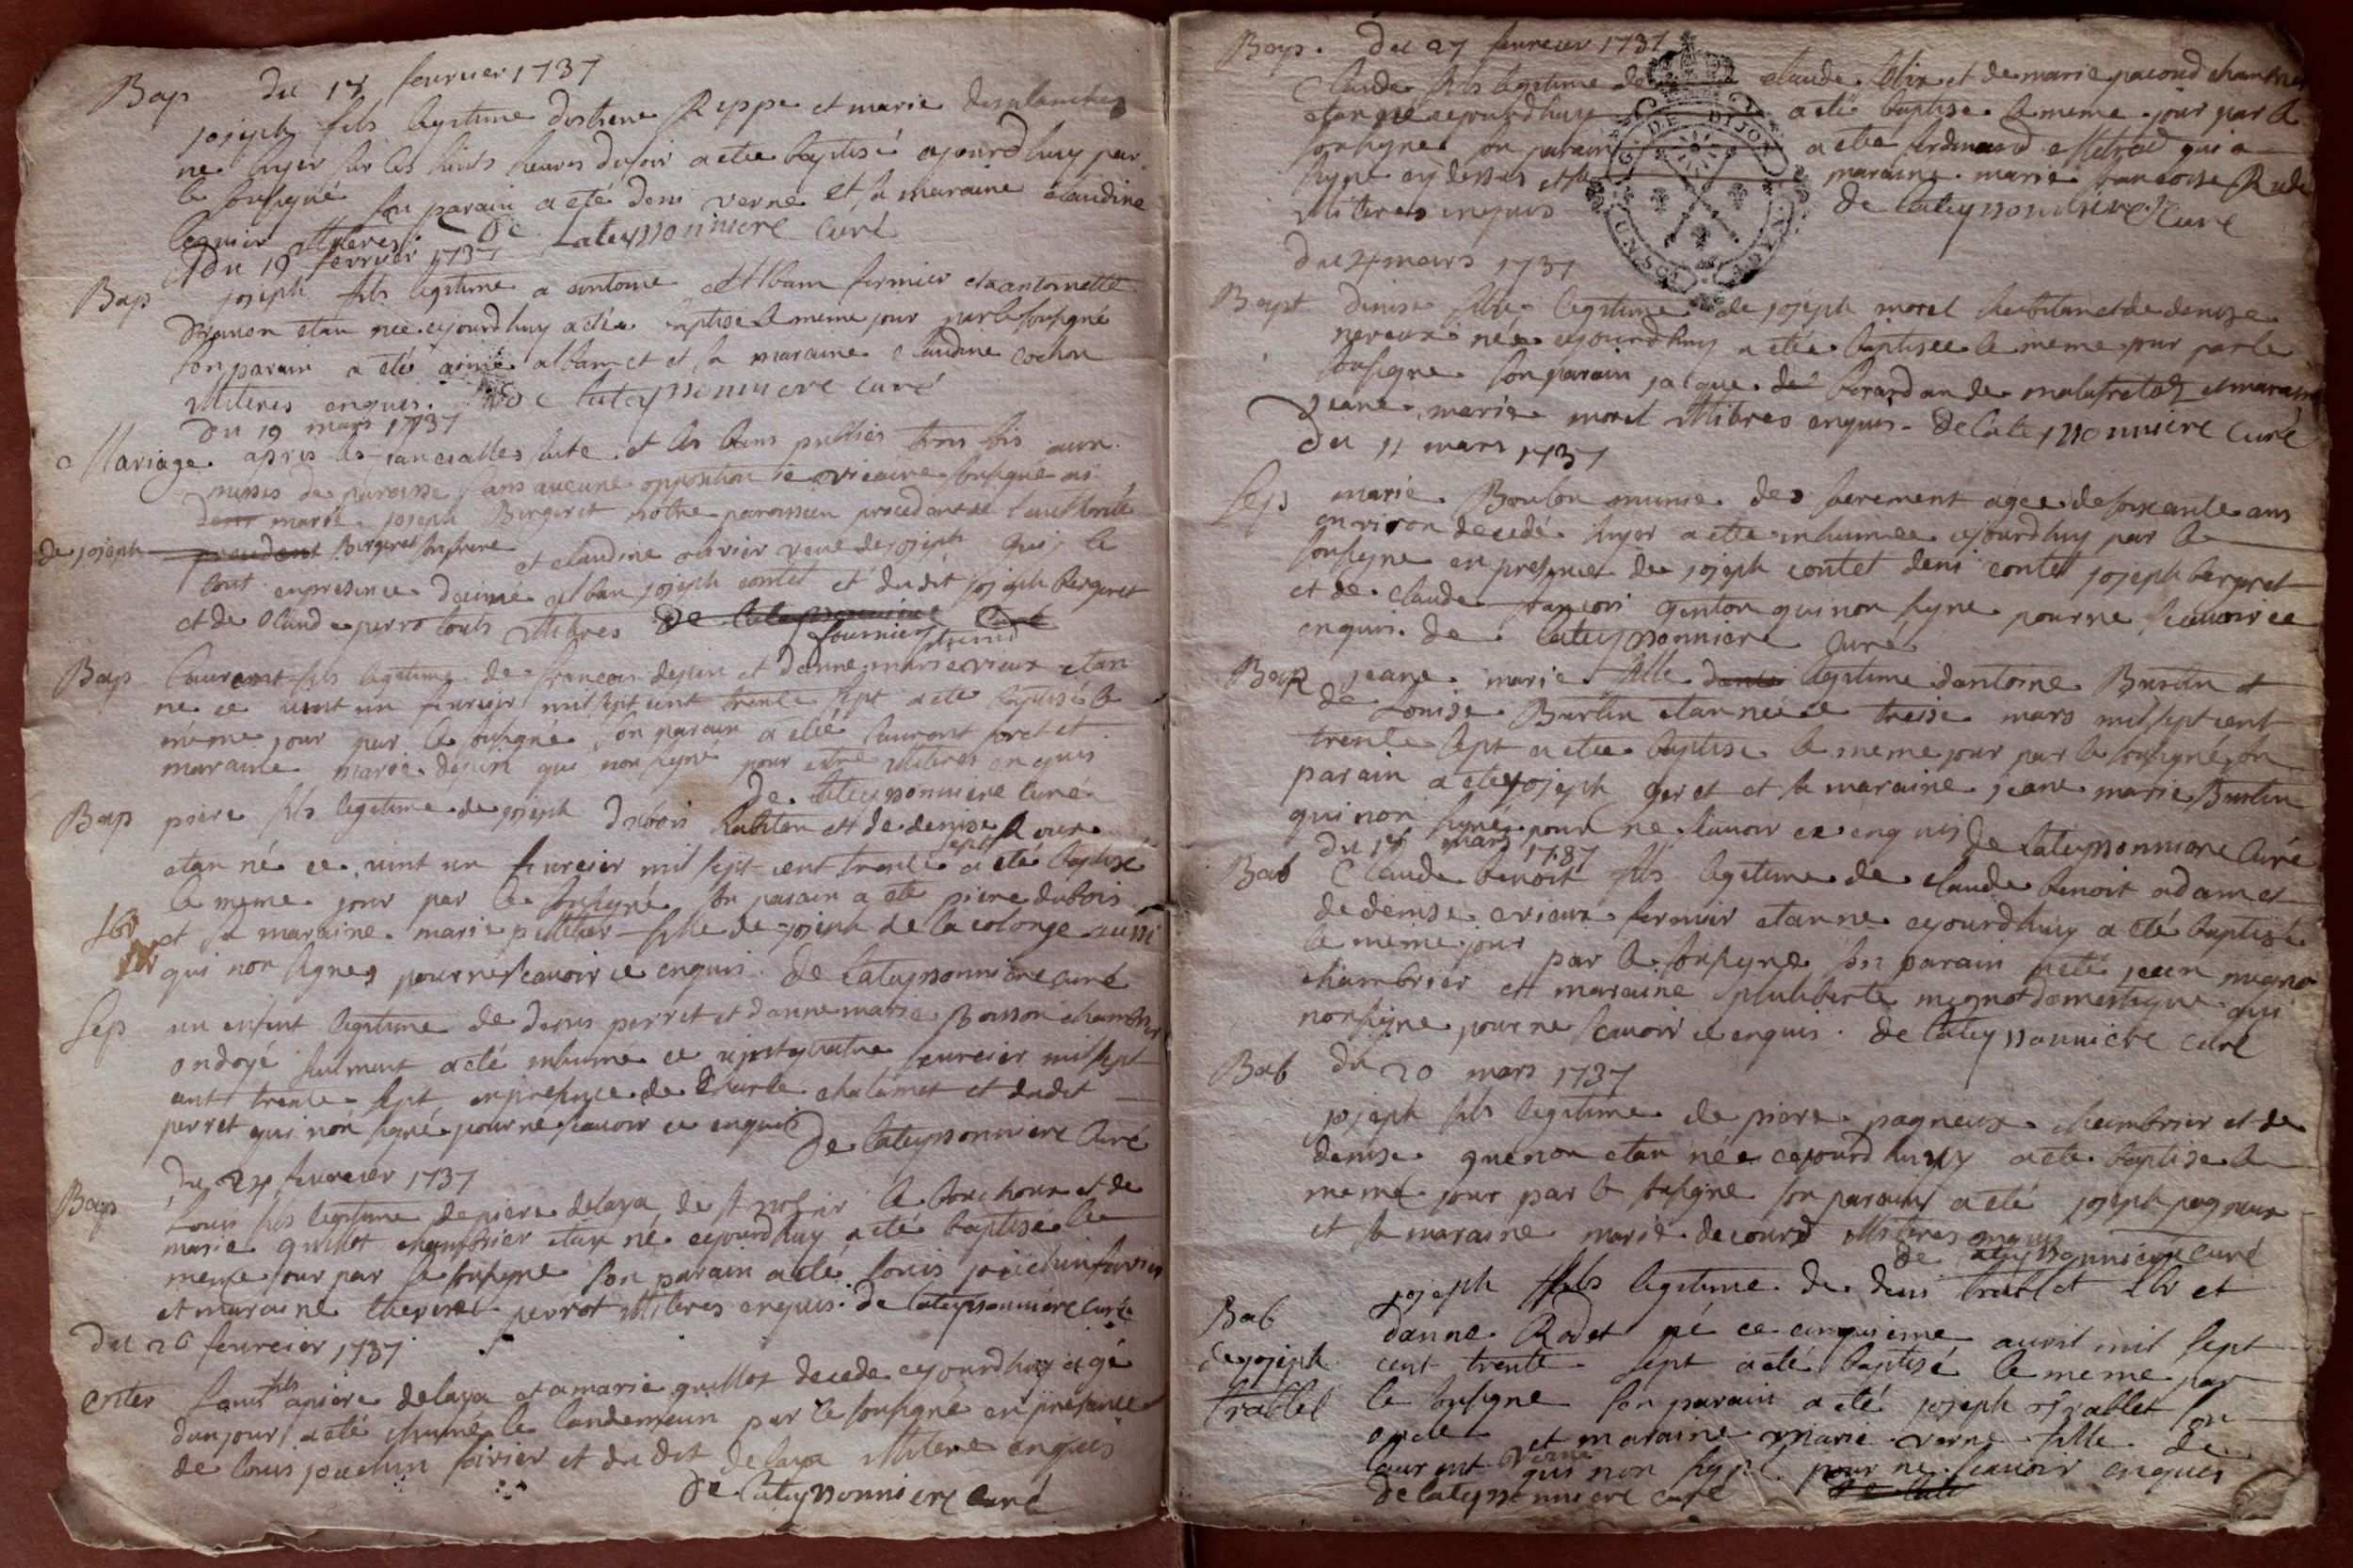 Bap du 17 feurier 1737
joseph fils legitime destiene Reppe et marie desplanches
ne hyer sur les huits heures du soir a ete baptisé ajourdhuy par
le soussigné son parain a eté deni verne et sa maraine claudine
De Lateyssonniere curé
du 19 feurier 1737
Bap joseph fils legitime a antoine fermier et a antoinette
etan née cejourdhuy a été baptisé le meme jour par le soussigné
son parain a eté aimé albanet et sa maraine claudine cochon
illiteres enquis. De Lateyssonniere curé
du 19 mars 1737
Mariage. apres les fiancialles faite et les bans publiés trois fois aux
messes de paroisse sans aucune opposition ie vicaire soussigné ai
marié joseph Bergeret notre paroissien
de joseph Bergeret son frere et claudine veuve de joseph le
tout en presence daimé alban joseph contet et dudit joseph bergeret
et de Claude touts illitires De lateyssonniere Curé
fournier
Bap Laurent fils legitime de francois depin et danne marie vieux etan
né ce vint un feurier mil sept cent trente sept a eté baptisé le
même jour par le soussigné son parain a eté laurent foret et
maraine marie depin qui non signé pour estre illiteres enquis
De lateyssonniere curé
Bap piere fils legitime de joseph Dubois habitan et de denise
etan né ce vint un feurier mil sept cent trente sept a eté baptisé
le meme jour par le soussigné son parain a eté piere dubois
lbr et sa maraine marie pelletier fille de joseph de la colonge aussi lbr
qui non signes pour ne scauoir ce enquis. De Lateyssonniere curé
Sep un enfent legitime de denis perret et danne marie Boisson chambrier
ondoyé seulment a eté inhumé ce vint quatre feurier mil sept
cent trente sept en presence de Charle chalamet et dudit
perret qui non signé pour ne scauoir ce enquis De lateyssonniere Curé
du 24 feurier 1737
Bap Louis fils legitime de piere delaya de et de
marie guillot chambrier etan né cejourdhuy a eté baptisé le
meme jour par le soussigné son parain a eté louis joachim
et maraine perrot illiteres enquis. De lateyssonniere curé
du 26 feurier 1737
enter Louis fils a piere delaya et a marie guillot decede cejourdhuy agé
dun jour a eté inhumé le landemain par le soussigné en presance
de louis joachim et du dit delaya illitere enquis
De lateyssonniere curé
Bap. du 27 feurier 1737
Claude fils legitime de claude et de marie pacoud chambrier
etan né cejourdhuy a eté baptisé le meme jour par le
soussigné son parain a ette qui a
signé cy dessus et sa maraine marie francoise
illiteres enquis de lateyssonniere Curé
du 4 mars 1737
Bapt denise fille legitime de joseph morel habitan et de denise
neveux née cejourdhuy a eté baptisee le meme jour par le
soussigne son parain jacque de malafretaz et maraine
jeane marie morel illitires enquis. De lateyssonniere curé
du 11 mars 1737
Sep marie Boulon munie des sacrement agee de soixante ans
environ decedé hyer a ette inhumée cejourdhuy par le
soussigne en presence de joseph contet deni contet joseph bergeret
et de claude francois genton qui non signe pour ne scauoir ce
enquis. De Lateyssonniere curé
Bap jeane marie fille legitime dantoine Burtin et
de Louise Burtin etan née ce treise mars mil sept cent
trente sept a etee baptise le meme jour par le soussigné son
parain a ete joseph geret et sa maraine jeane marie Burtin
qui non signés pour ne scauoir ce enquis De Lateyssonniere Curé
du 17 mars 1737
Bab Claude benoit fils legitime de claude benoit adam et
de denise fermier etan ne cejourdhuy a eté baptisé
le meme jour par le soussigne son parain a eté jean
chambrier et maraine philiberte mignot domestique qui
non signe pour ne scauoir ce enquis. De lateyssonniere curé
Bab du 20 mars 1737
joseph fils legitime de piere pagneux chambrier et de
denise guenon etan née cejourdhuy a ete baptise le
meme jour par le soussigné son parain a eté joseph pagneux
et sa maraine marie decourd illiteres enquis
de lateyssonniere curé
Bab de joseph trablet joseph fils legitime de deni trablet lbr et
danne Rodet né ce cinquieme auril mil sept
cent trente sept a eté baptisé le meme par
le soussigne son parain a eté joseph trablet son
oncle et maraine marie verne fille de
laurent verne qui non signé pour ne scauoir enquis
De lateyssonniere curé